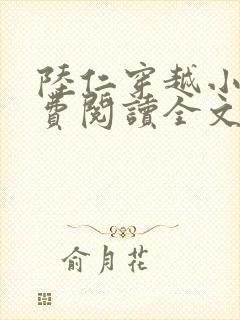 陸仁穿越小
費閱讀全文
俞月花